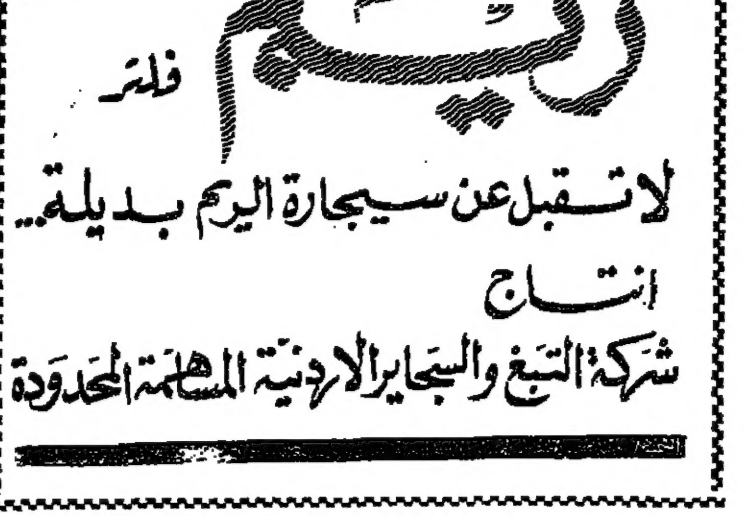 ريم
فلتر
لا تقبل عن سيجارة الريم بديلة..
انتاج
شركة التبغ والسجاير الاردنية المساهمة المحدودة